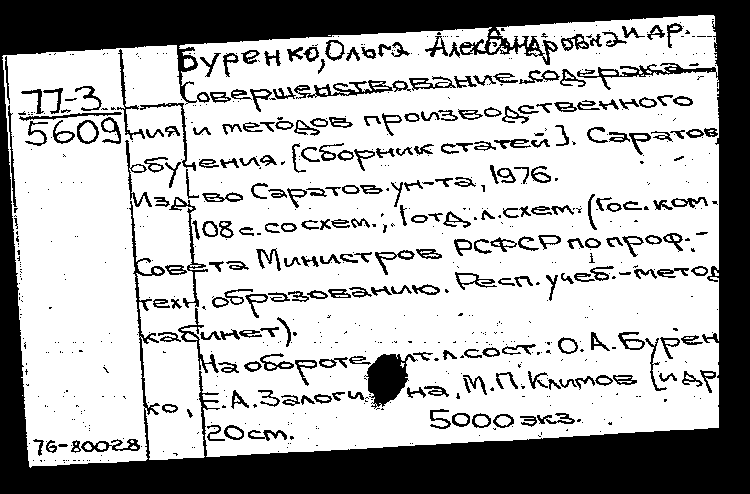 Буренко, Ольга Александровна и др.
П-3
5609
Совершенствование содержа-
ния и методов производственного
обучения. [Сборник статей]. Саратов,
Изд-во Саратов. ун-та, 1976.
108 с. со схем.; 1 отд. л. схем. (Гос. ком.
Совета Министров РСФСР по проф.-
техн. образованию. Респ. учеб.-метод
кабинет).
На обороте тит. л. сост.: О.А. Бурен
ко, Е.А. Залоги на, М.П. Климов [и др
20 см. 5000 экз.
76-80028